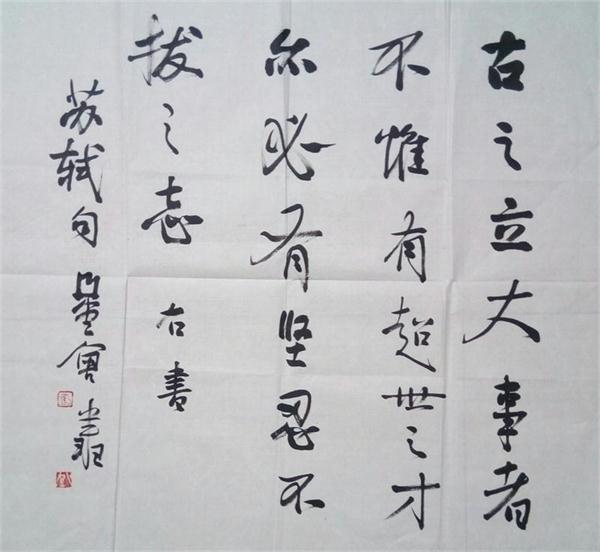 古之立大事者
不惟有超世之才
亦必有坚忍不
拔之志 右书
苏轼句